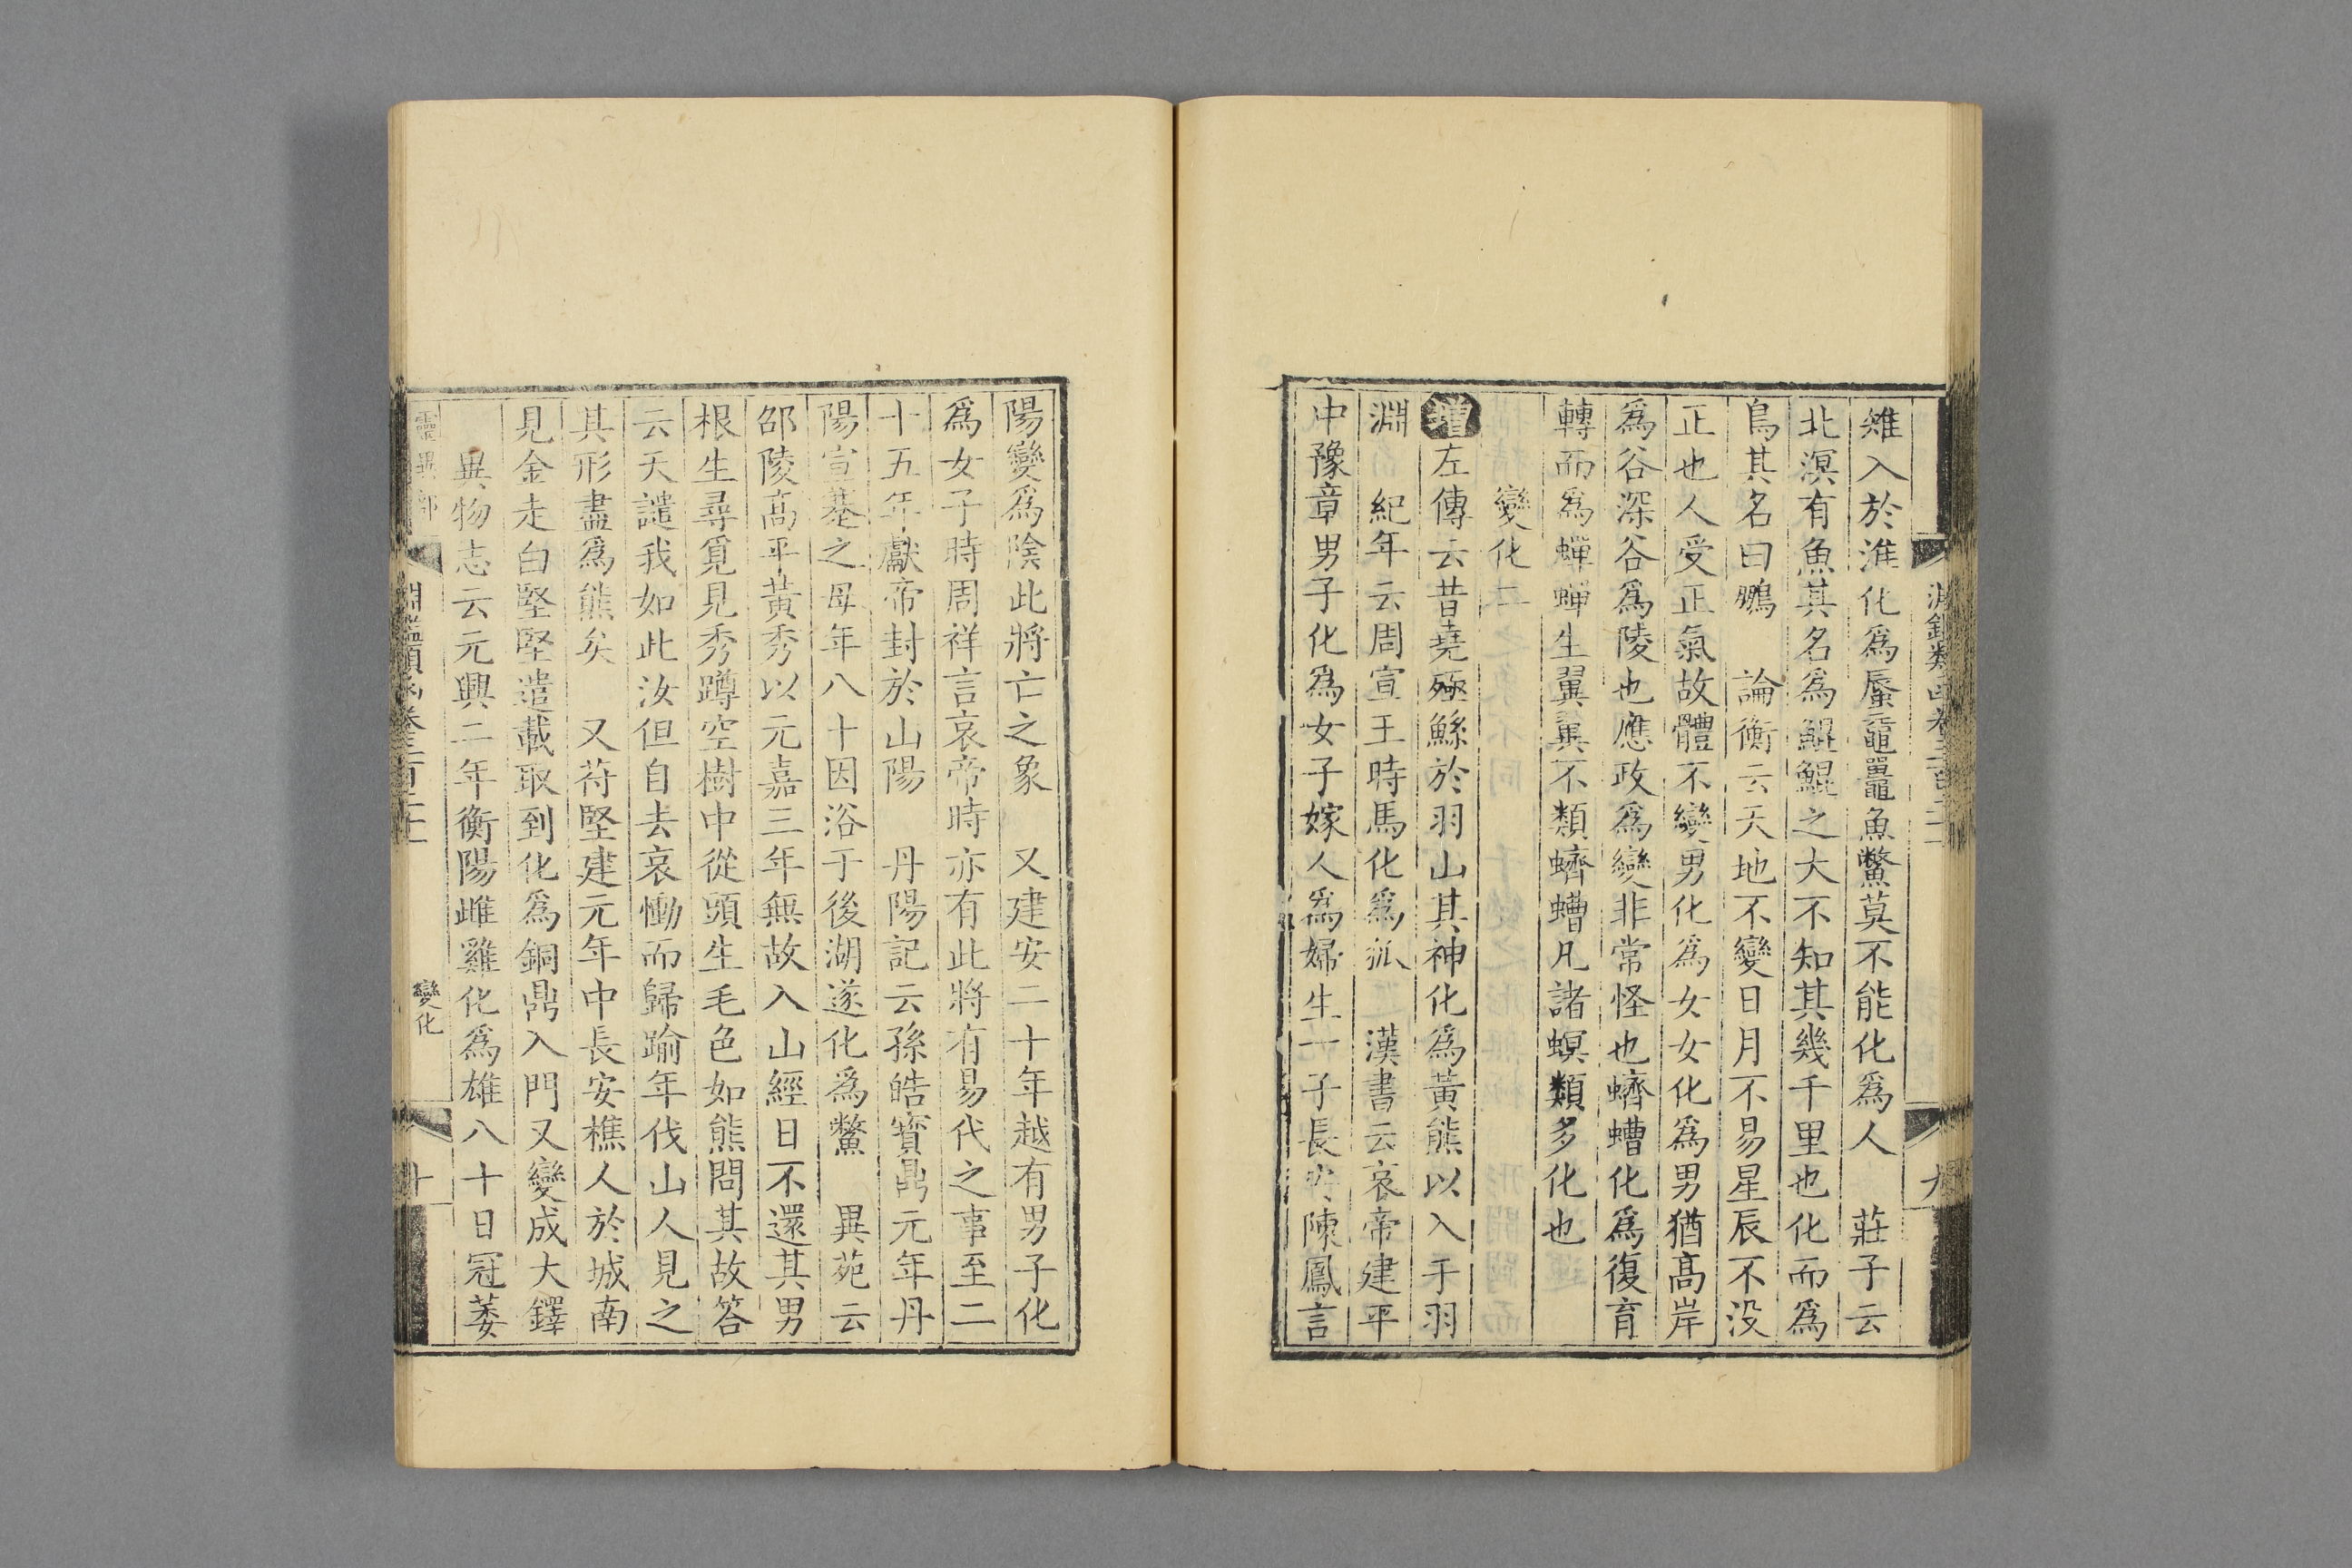 雉入於淮化爲蜃黿鼉魚鱉莫不能化爲人　莊子云
北溟有魚其名爲鯤鯤之大不知其幾千里也化而爲
鳥其名曰鵬　論衡云天地不變日月不易星辰不没
正也人受正氣故體不變男化爲女女化爲男猶髙岸
爲谷深谷爲陵也應政爲變非常怪也蠐螬化爲復育
轉而爲蟬蟬生翼翼不類蠐螬凡諸螟類多化也
變化二
增左傳云昔堯殛鯀於羽山其神化爲黃熊以入于羽
淵　紀年云周宣王時馬化爲狐　漢書云哀帝建平
中豫章男子化爲女子嫁人爲婦生一子長安陳鳳言
陽變爲陰此將亡之象　又建安二十年越有男子化
爲女子時周祥言哀帝時亦有此將有易代之事至二
十五年獻帝封於山陽　丹陽記云孫皓寳鼎元年丹
陽宣蹇之母年八十因浴于後湖遂化爲鱉　異苑云
邵陵髙平黃秀以元嘉三年無故入山經日不還其男
根生尋覓見秀蹲空樹中從頭生毛色如熊問其故答
云天譴我如此汝但自去哀慟而歸踰年伐山人見之
其形盡爲熊矣　又苻堅建元年中長安樵人於城南
見金走白堅堅遣載取到化爲銅鼎入門又變成大鐸
異物志云元興二年衡陽雌雞化爲雄八十日冠萎
靈異部
淵鑑類函卷三百二十
變化
十